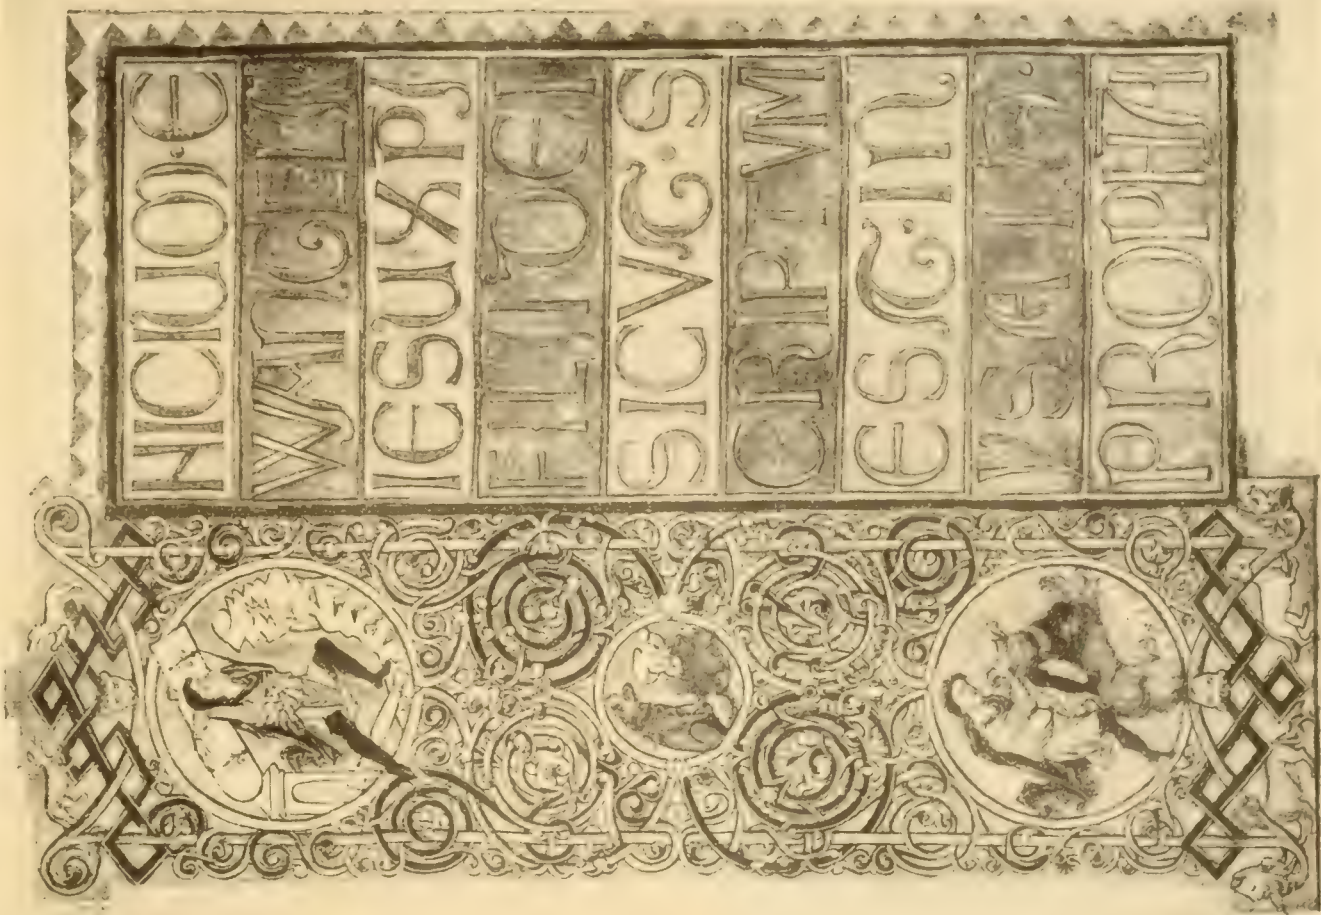 NICIUM·E
VVANGELII
IESU XPI
FILII DEI
SICVT·S
CRIPTVM
EST·IN
YSAIA·
PROPHETA